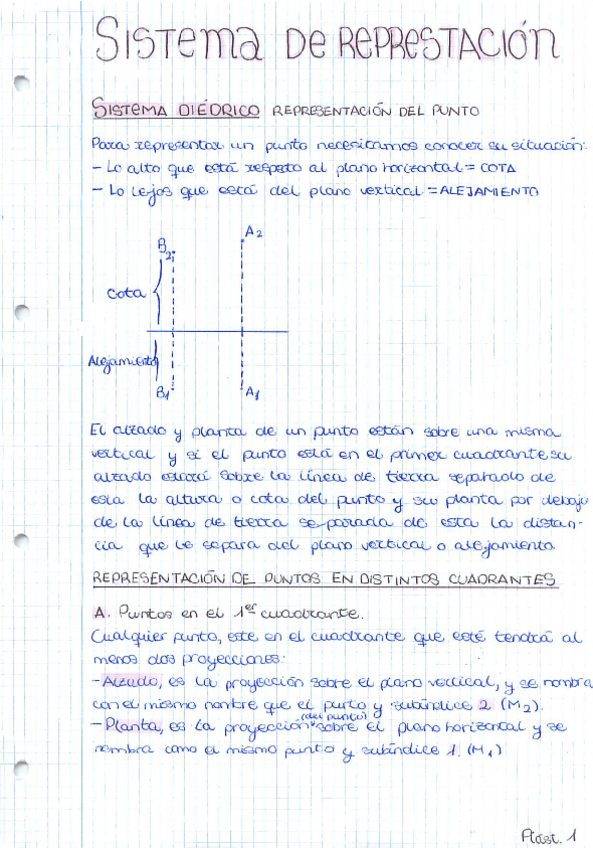 SISTEMA DE REPRESTACIÓN
SISTEMA DIÉDRICO REPRESENTACIÓN DEL PUNTO
Para representar un punto necesitamos conocer su situación:
- Lo alto que está respeto al plano horizontal = COTA
- Lo lejos que está del plano vertical = ALEJAMIENTO
A2
B2
Cota
Alejamiento
B1
A1
El alzado y planta de un punto están sobre una misma
vertical y si el punto está en el primer cuadrante su
alzado estará sobre la línea de tierra separado de
esta la altura o cota del punto y su planta por debajo
de la línea de tierra separada de esta la distan-
cia que le separa del plano vertical o alejamiento.
REPRESENTACIÓN DE PUNTOS EN DISTINTOS CUADRANTES
A. Puntos en el 1er cuadrante.
Cualquier punto, este en el cuadrante que esté tendrá al
menos dos proyecciones:
- Alzado, es la proyección sobre el plano vertical, y se nombra
con el mismo nombre que el punto y subíndice 2 (M2).
(del punto)
- Planta, es la proyección sobre el plano horizontal y se
nombra como el mismo punto y subíndice 1. (M1)
Plást. 1